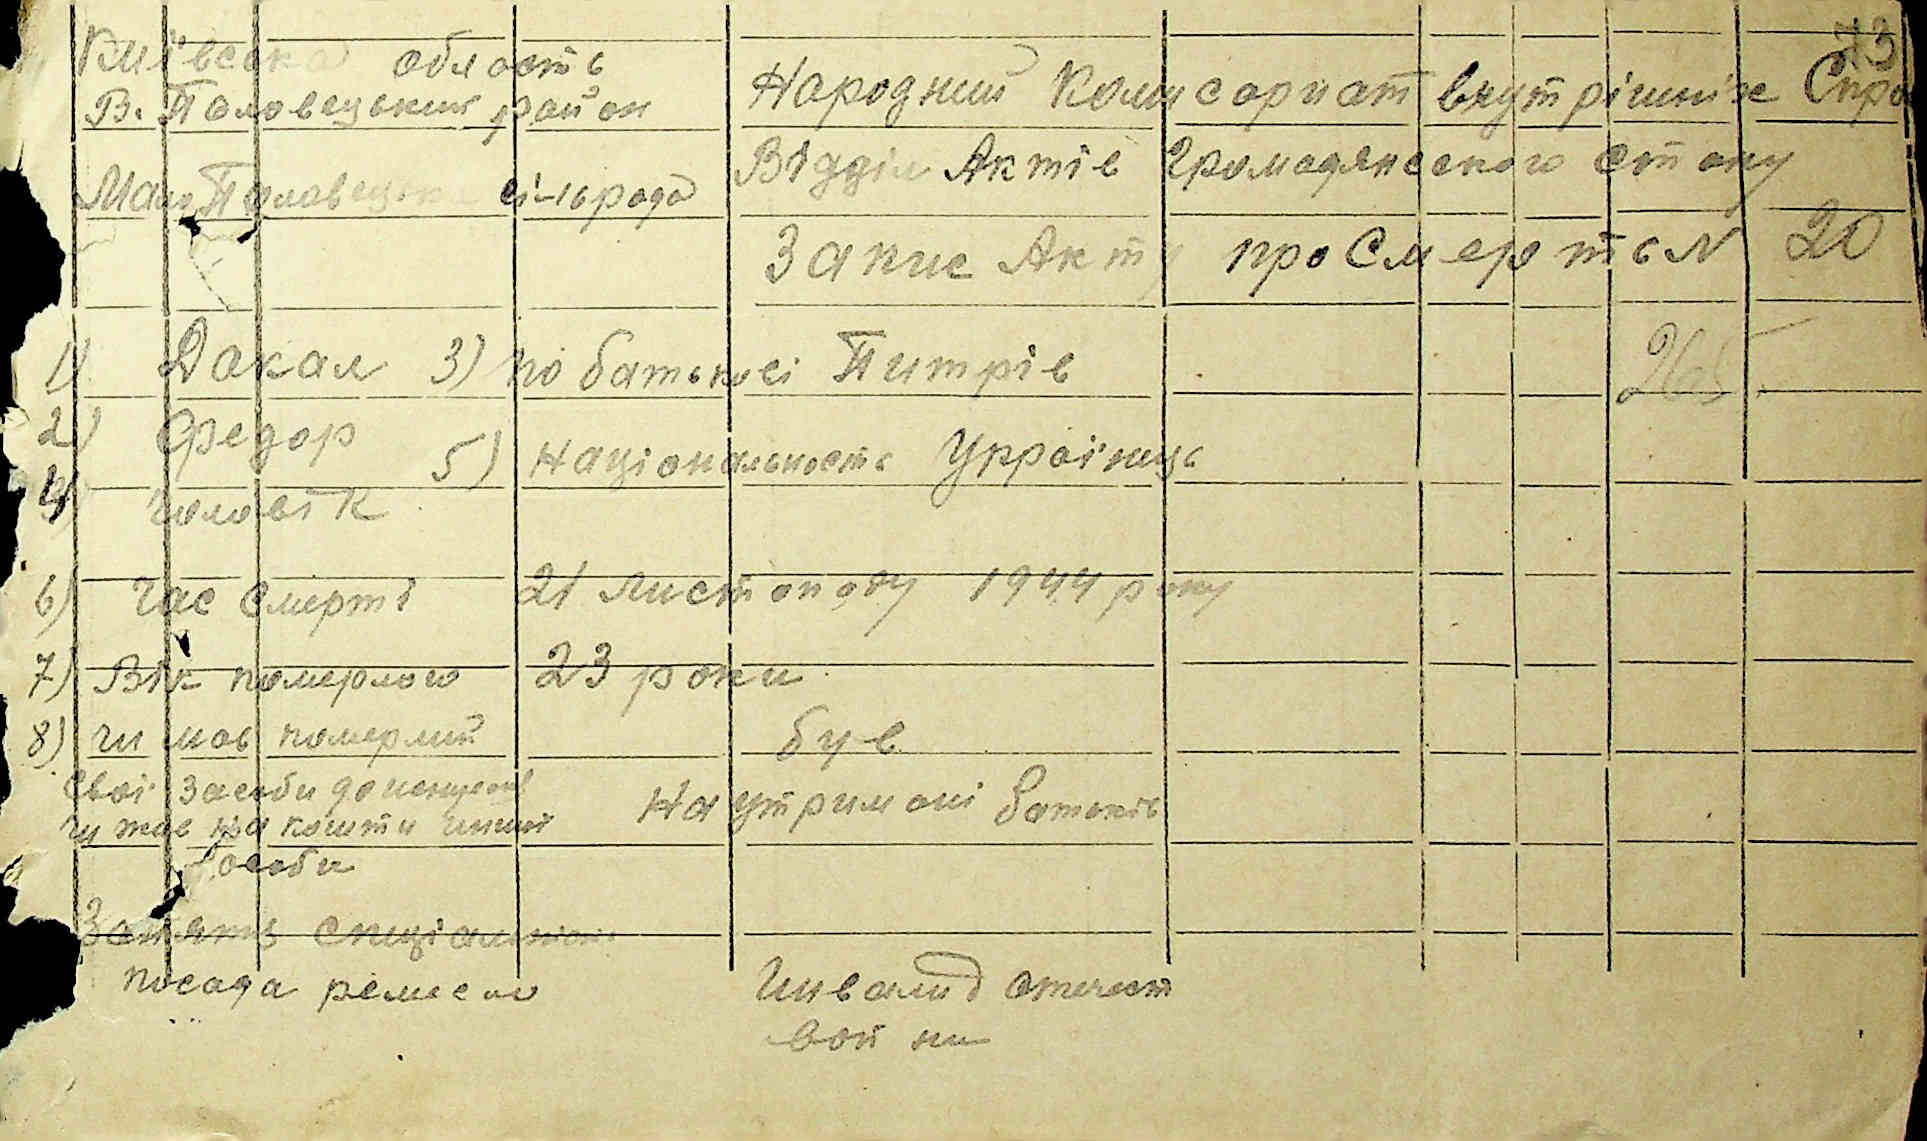 73
Київська область
В. Половецький район
Народний Комисариат внутрішніх Спра
Мало Половецька сільрада
Відділ Актів Громадянського стану
Запис Акту про Смерть N 20
1) Дакал 3) по батькові Питрів
265
2) Федор
5) Національность Украінець
4) чоловік
6) Час смерті 21 Листопаду 1944 року
7) Вік померлого 23 роки
8) чи мав померлий був
свої засоби до
чи жив на кошти иншої На утримані батьків
особи
Заняття спиціальність
посада ремесло Инвалид отечест
войни